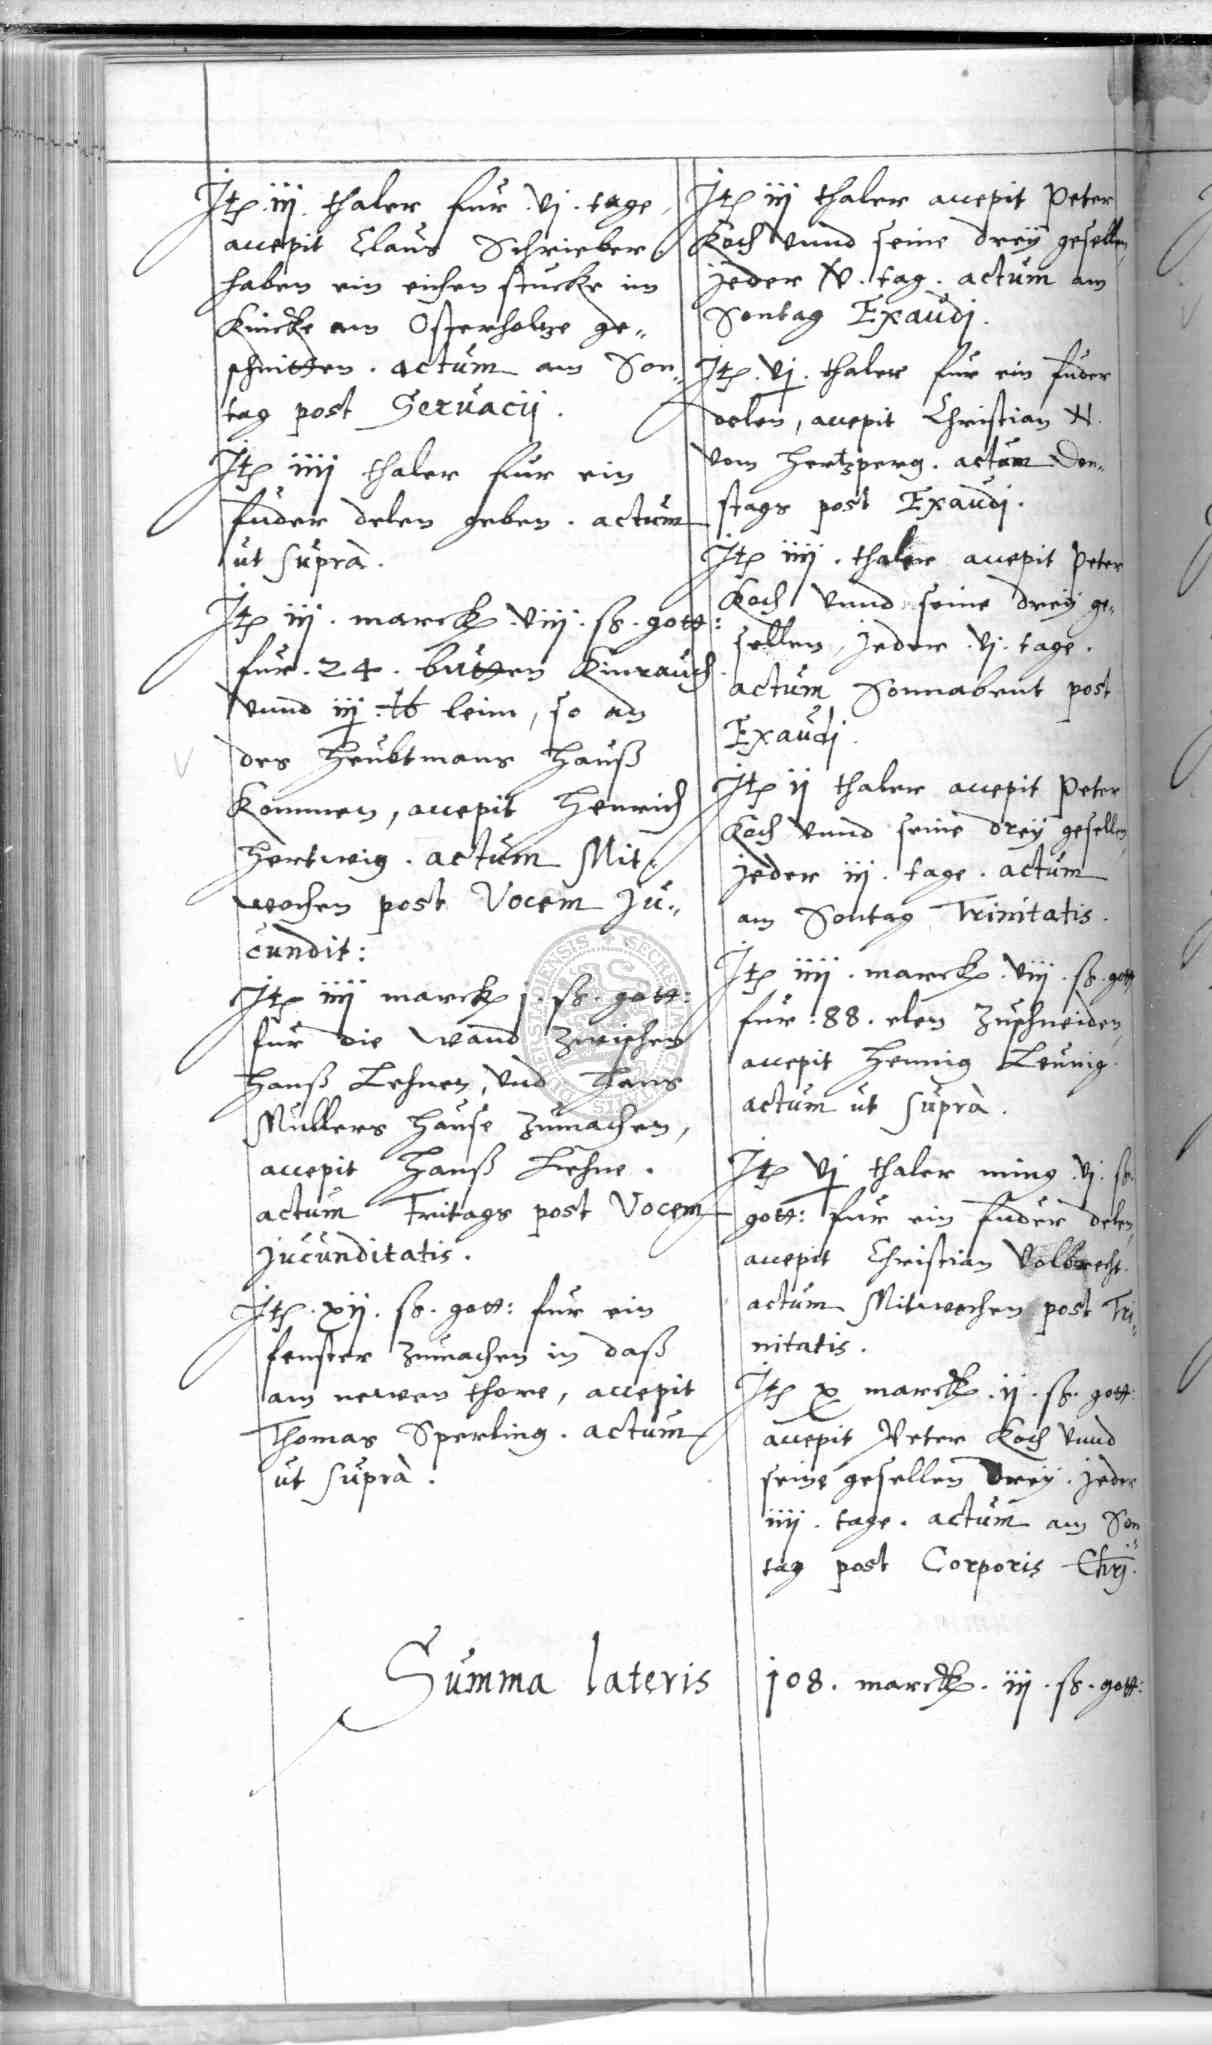 Jtꝫ .iij. thaler fur .vj. tage,
accepit Claus Schrieber
haben ein eichen stucke im
Kincke am Osterholtze ge„
schnitten. actum am Son„
tag post Servacij.
Jtꝫ iiij thaler fur ein
fuder delen geben. actum
ut supra.
Jtꝫ iij. marck .viij. ß. gott:
fur .24. butten Kinrauch
vnnd iij ℔ leim, so an
des heubtmans hauß
kommen, accepit Henrich
Hertwig. actum Mit„
wochen post Vocem Ju„
cundit:
Jtꝫ iiij marck j. ß. gott:
fur die wand zwischen
Hanß Lehnen, vnd Hans
Mullers hause zumachen,
accepit Hanß Lehne.
actum Fritags post Vocem
jucunditatis.
Jtꝫ .xij. ß. gott: fur ein
fenster zumachen in daß
am newen thore, accepit
Thomas Sperling. actum
ut supra.
Jtꝫ iij thaler accepit Peter
Koch vnnd seine drey gesellen,
jeder v. tag. actum am
Sontag Exaudj.
Jtꝫ .vj. thaler fur ein fuder
delen, accepit Christian N.
vom Hertzperg. actum Don„
stags post Exaudj.
Jtꝫ iiij. thaler accepit Peter
Koch vnnd seine drey ge„
sellen, jeder .vj. tage.
actum Sonnabent post
Exaudj.
Jtꝫ ij thaler accepit Peter
Koch vnnd seine drey gesellen,
jeder iij. tage. actum
am Sontag Trinitatis.
Jtꝫ iiij. marck .viij. ß. gott
fur .88. elen zuschneiden,
accepit Hennig Leunig.
actum ut supra.
Jtꝫ vj thaler ming .vj. ß.
gott: fur ein fuder delen,
accepit Christian Volbrecht.
actum Mitwochen post Tri„
nitatis.
Jtꝫ x marck .ij. ß. gott:
accepit Peter Koch vnnd
seine gesellen drey. jeder
iiij. tage. actum am Son
tag post Corporis Chrj.
Summa lateris 108. marck. iij. ß. gott: